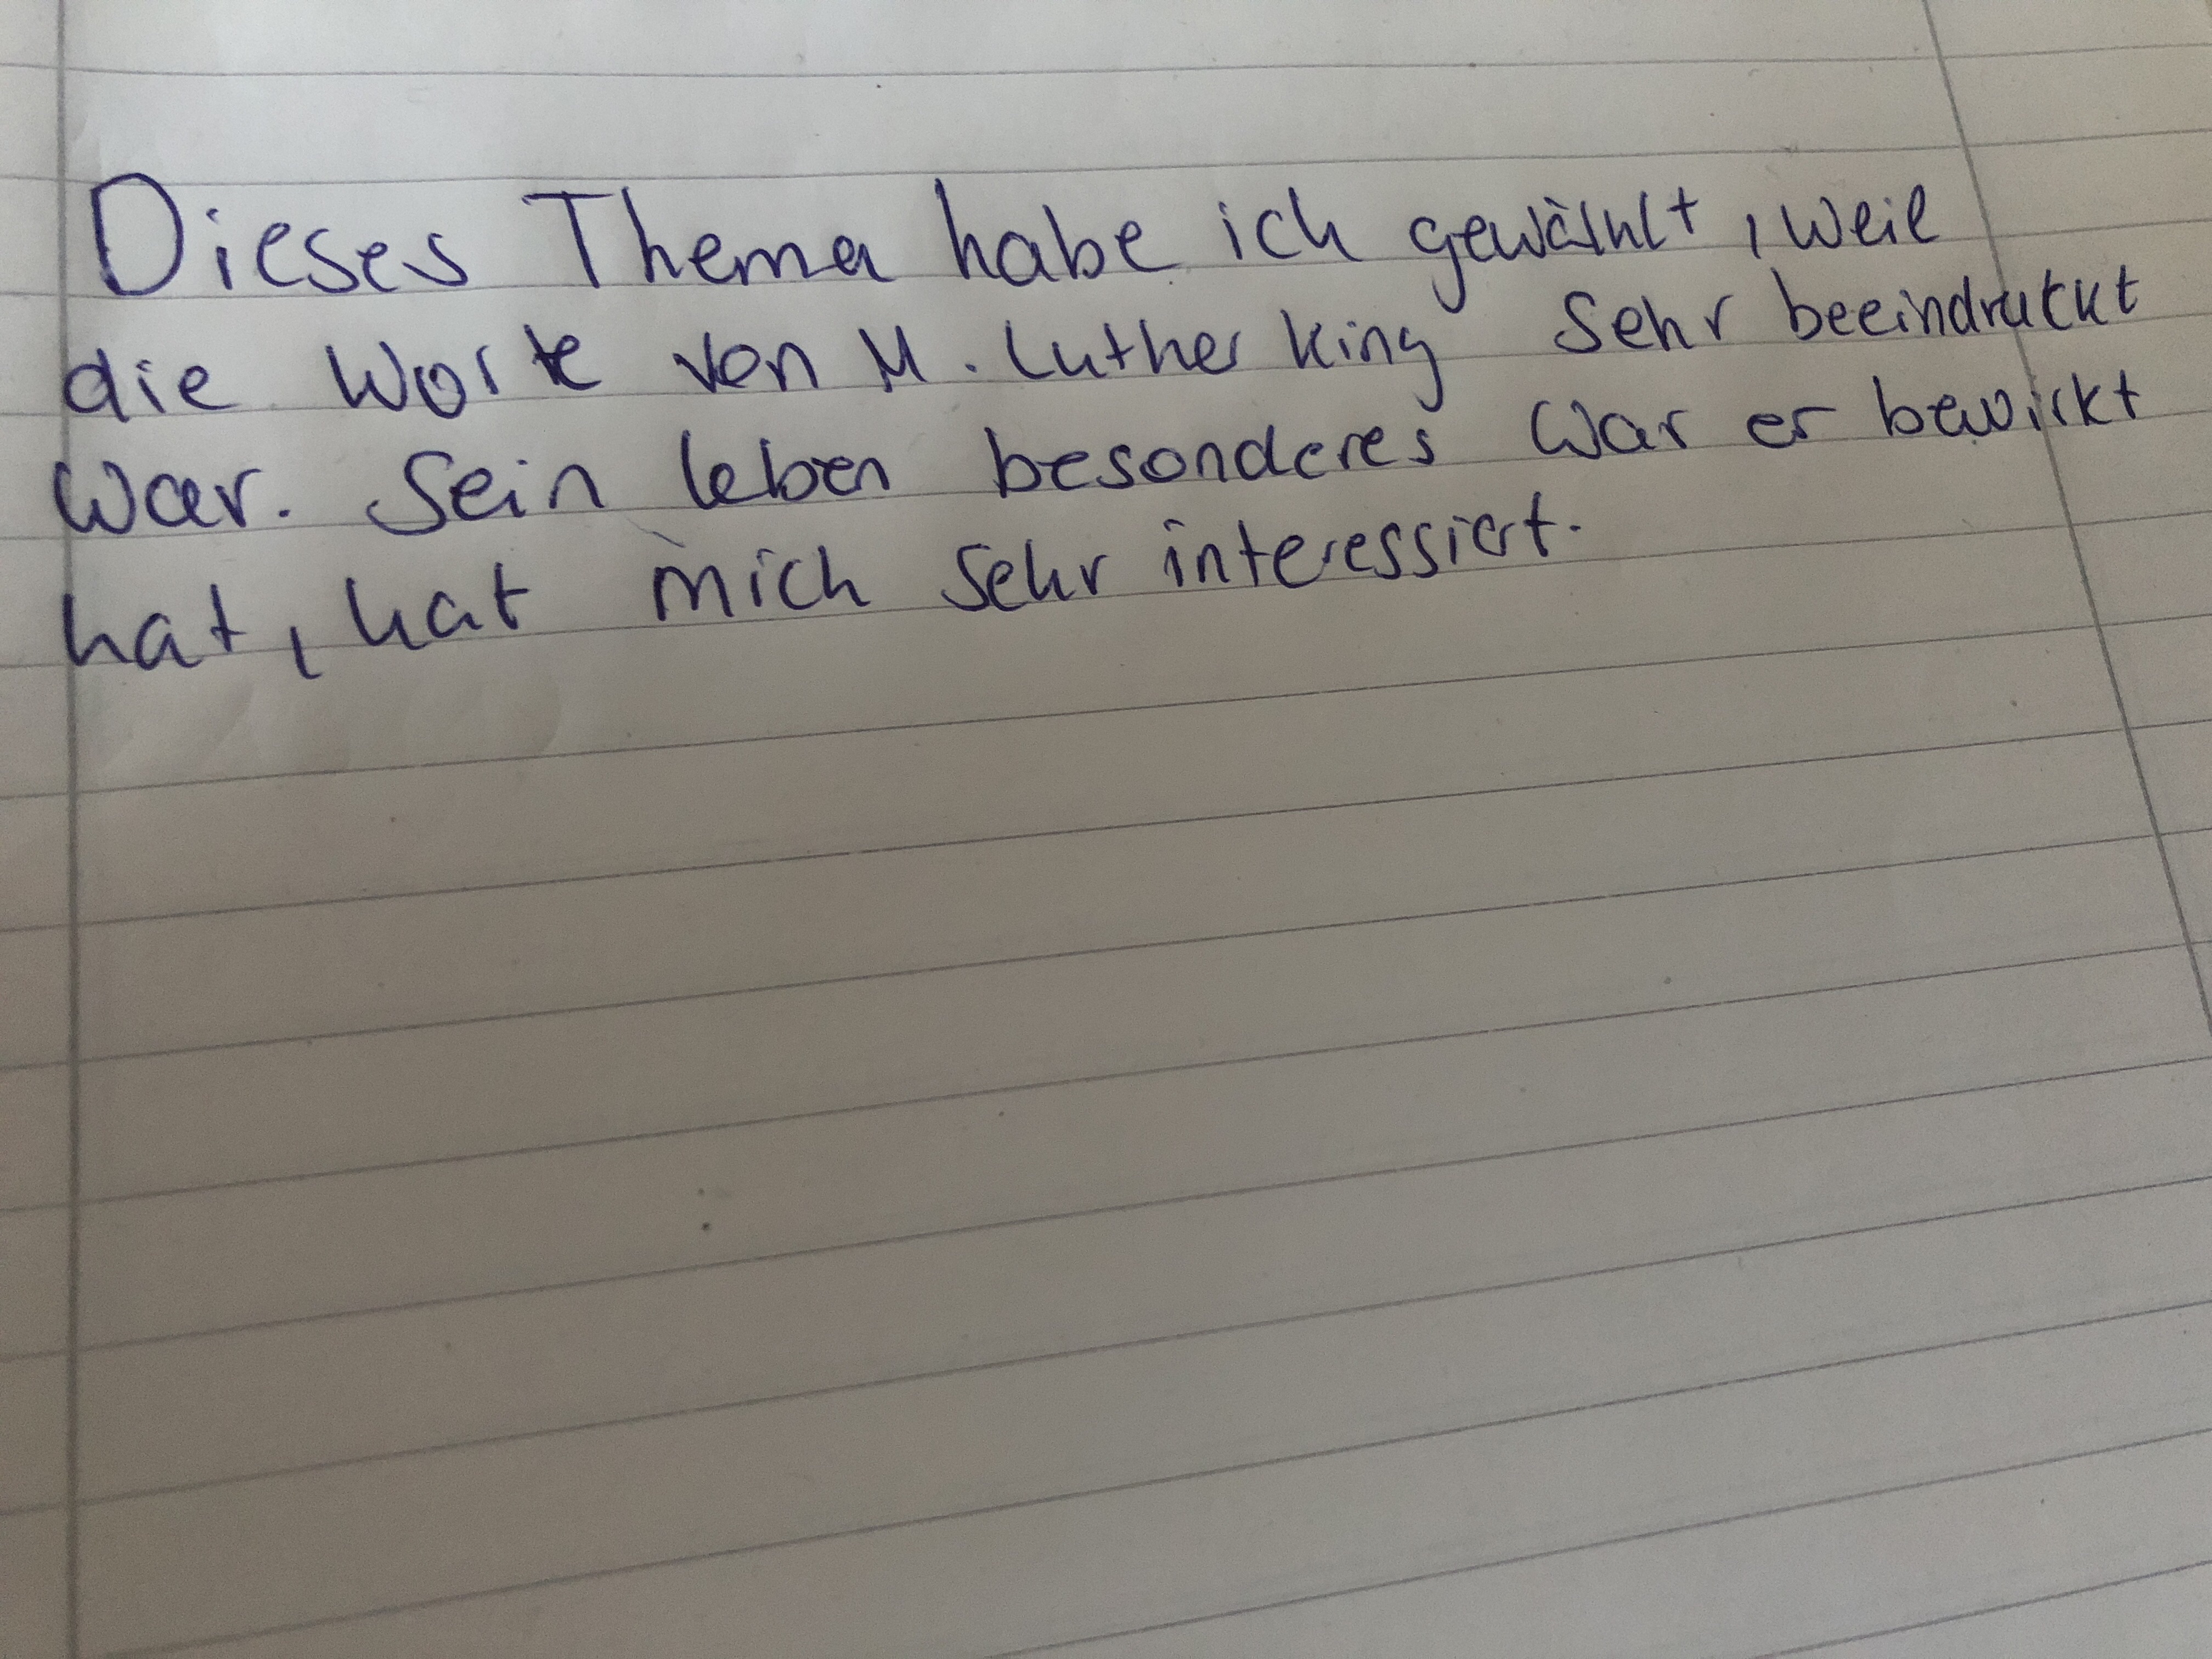 Dieses Thema habe ich gewählt, weil
die Worte von M. Luther King sehr beeindruckt
war. Sein leben besonderes war er bewirkt
hat, hat mich sehr interessiert.